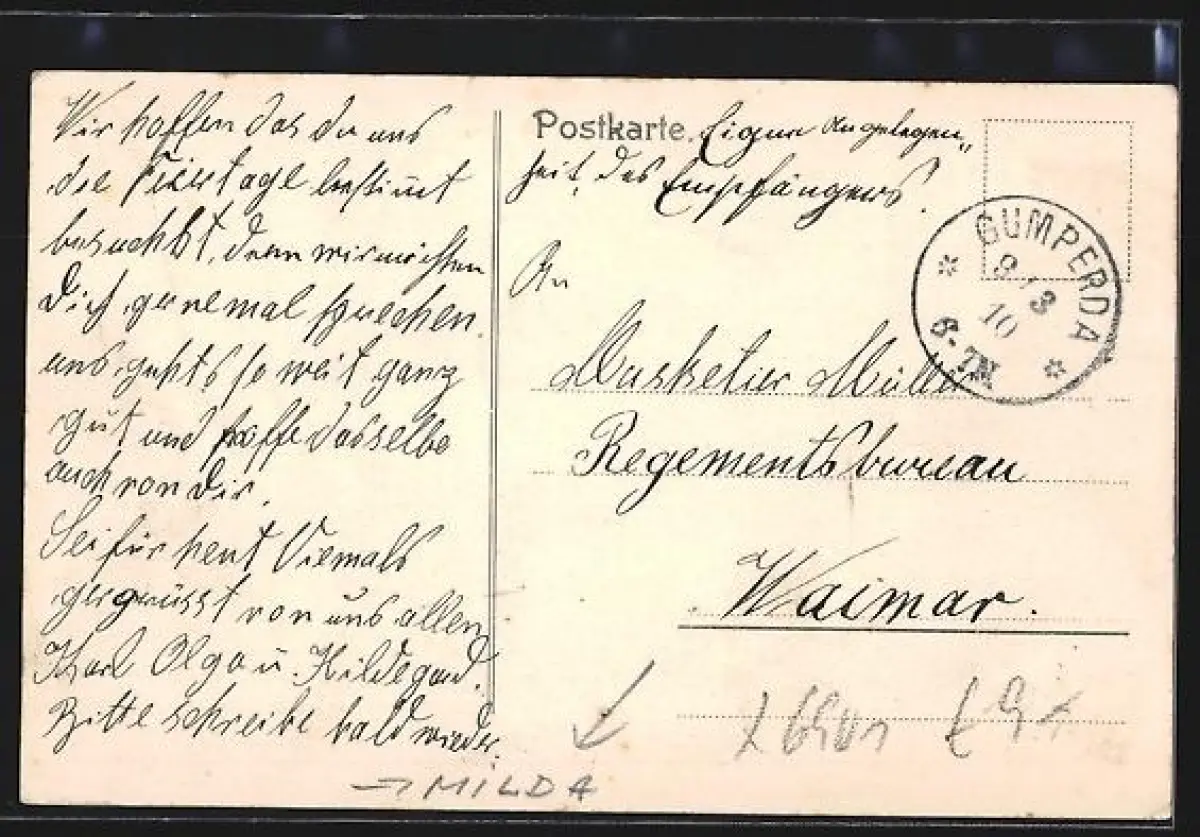 Wir hoffen das du uns
die Feiertage bestimt
besuchst, denn wir möchten
Dich gernemal sprechen.
uns gehts so weit ganz
gut und hoffe dasselbe
auch von Dir.
Sei für heut Viemals
gegrüsst von uns allen
Karl Olga u. Hildegard.
Bitte schreibe bald wieder.
Postkarte. Eigene Angelegen„
heit, des Empfängers.
An
Musketier Müller
Regementsbureau
Waimar.
GUMPERDA
9 3
10
6-7N
→ MILDA